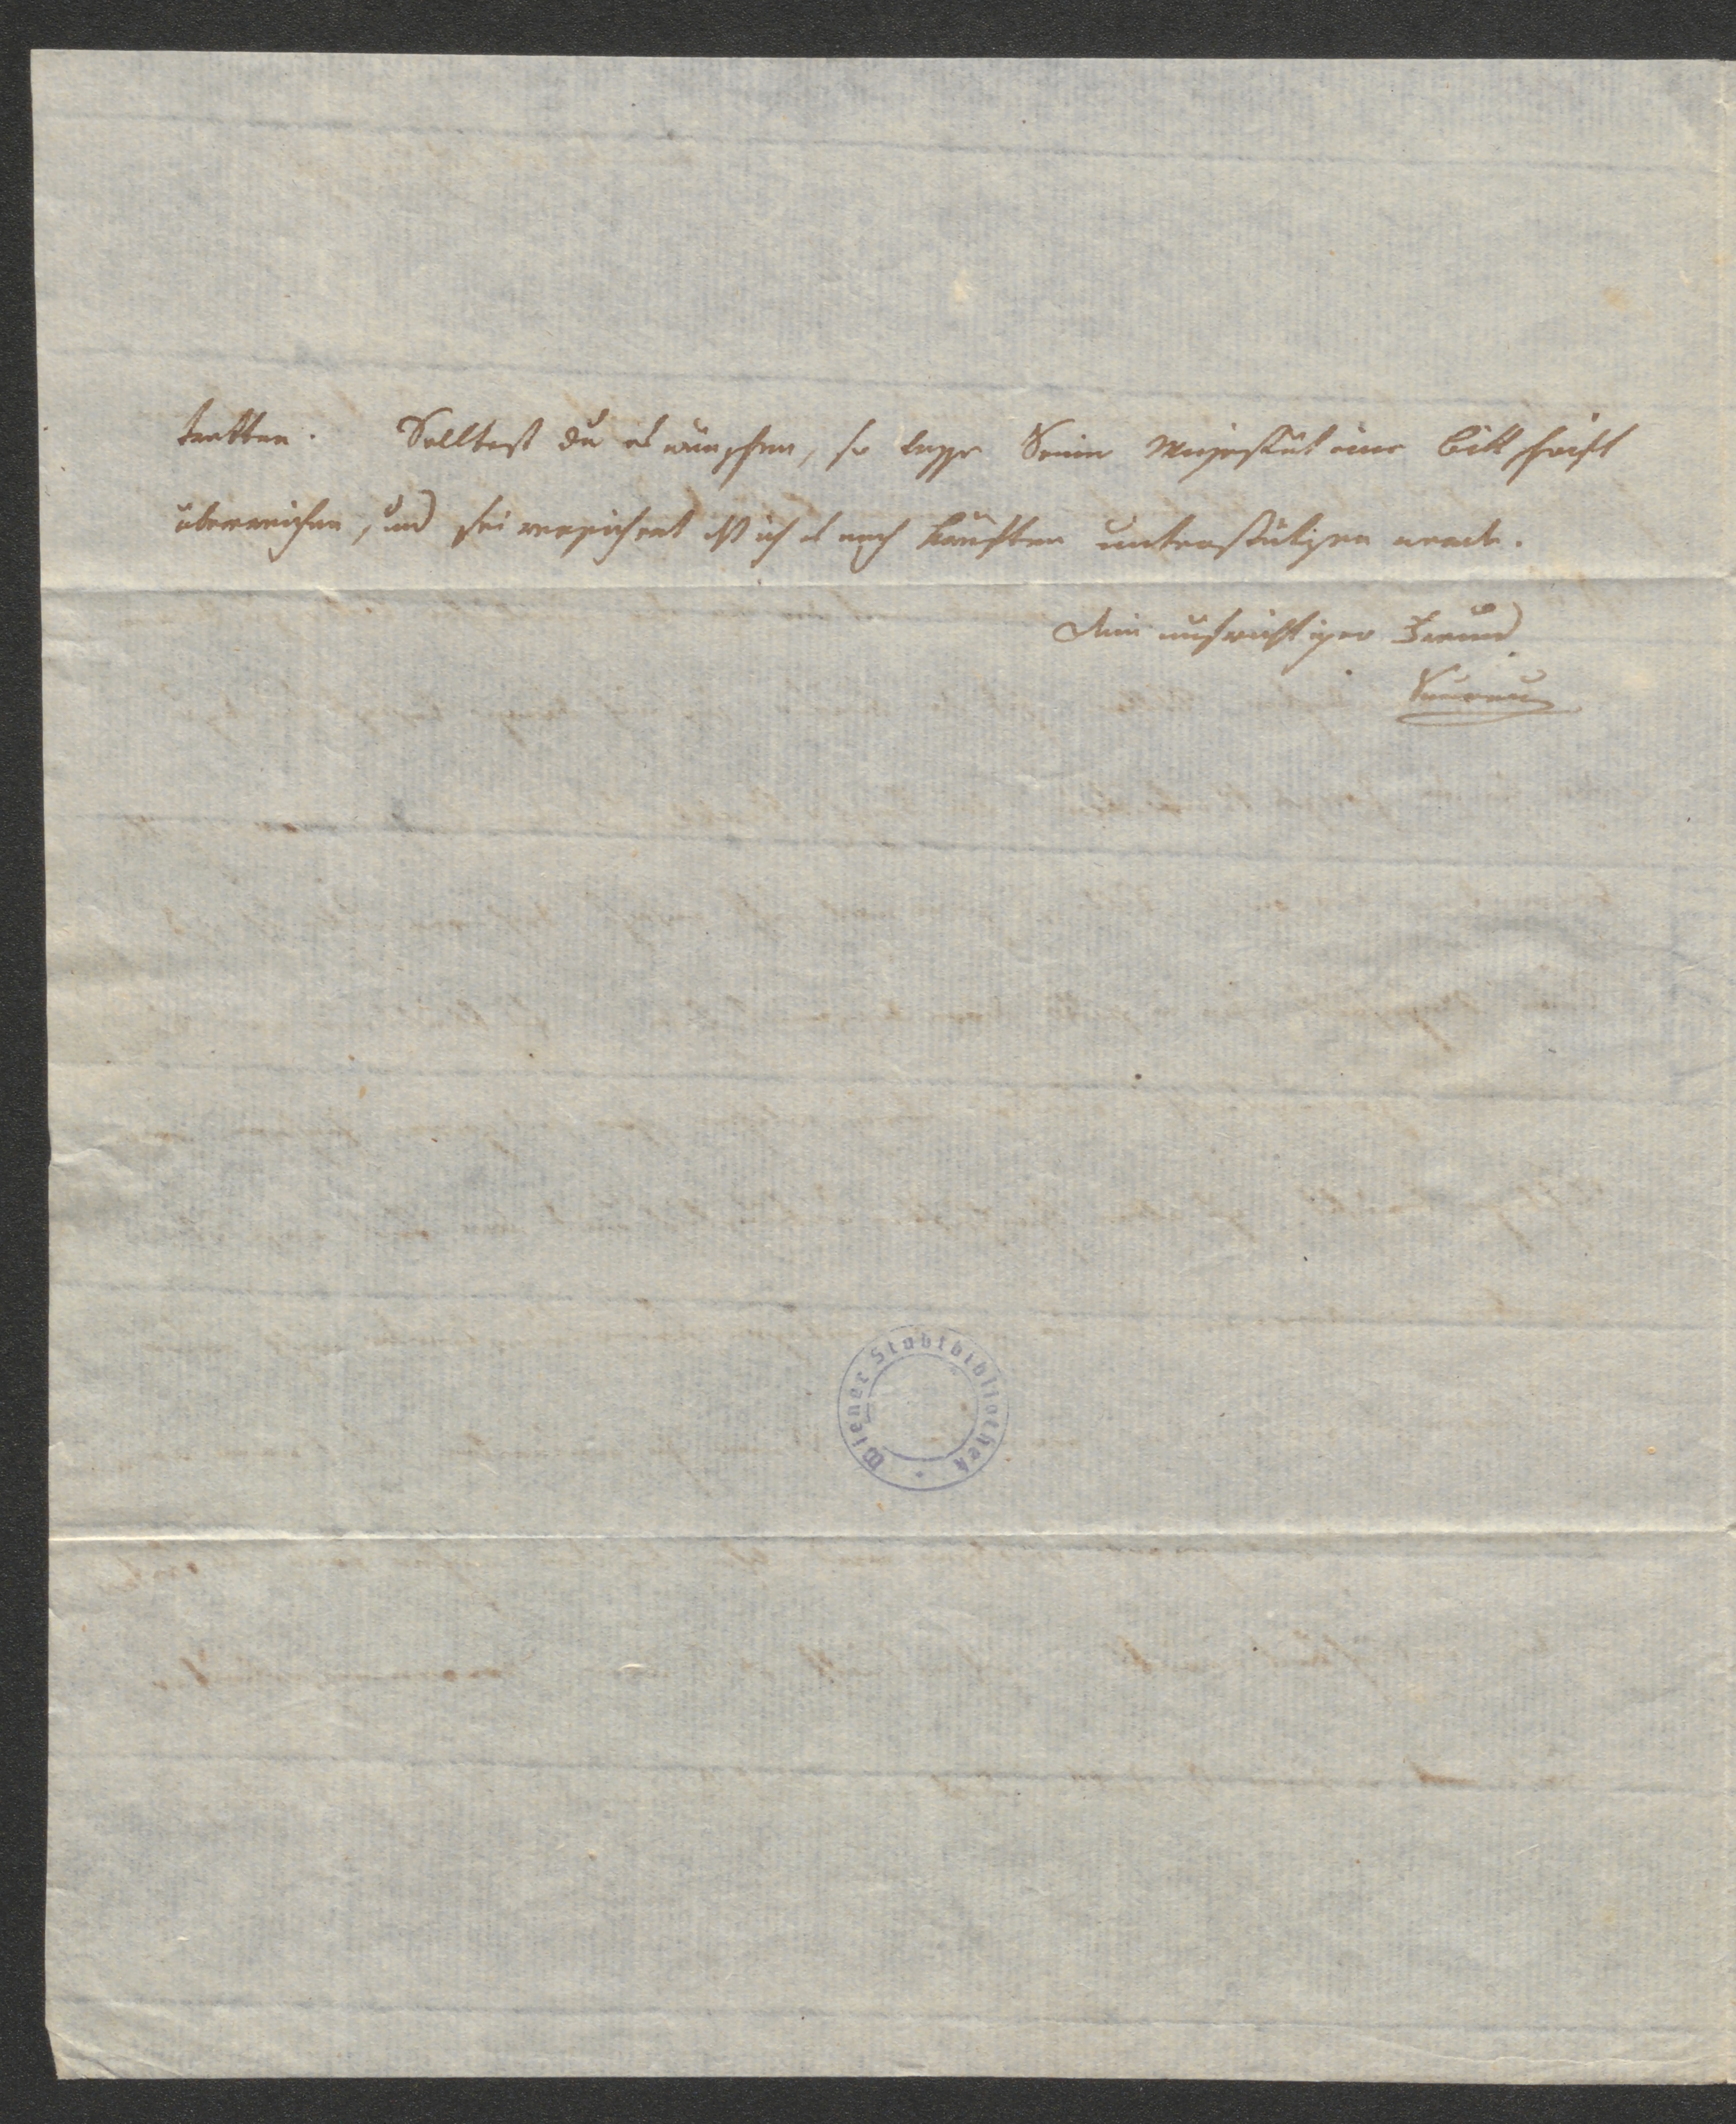 tretten. Solltest du es wünschen, so lasse Seiner Majestät eine bittschrift
überreichen, und sei versichert dß ich es nach kräften unterstützen werde.
dein aufrichtiger Freund
Saurau
Wiener Stadtbibliothek